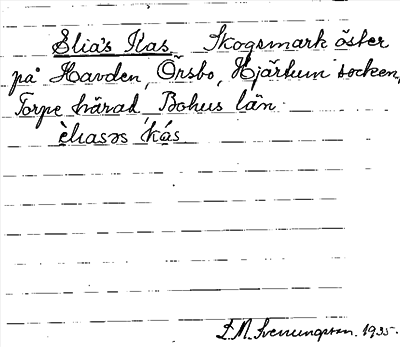 Elia's Kas Skogsmark öster
på Havden, Örsbo, Hjärtum socken,
Torpe härad Bohus län.
èliasəs kás
F. M. Svenungsson. 1935.